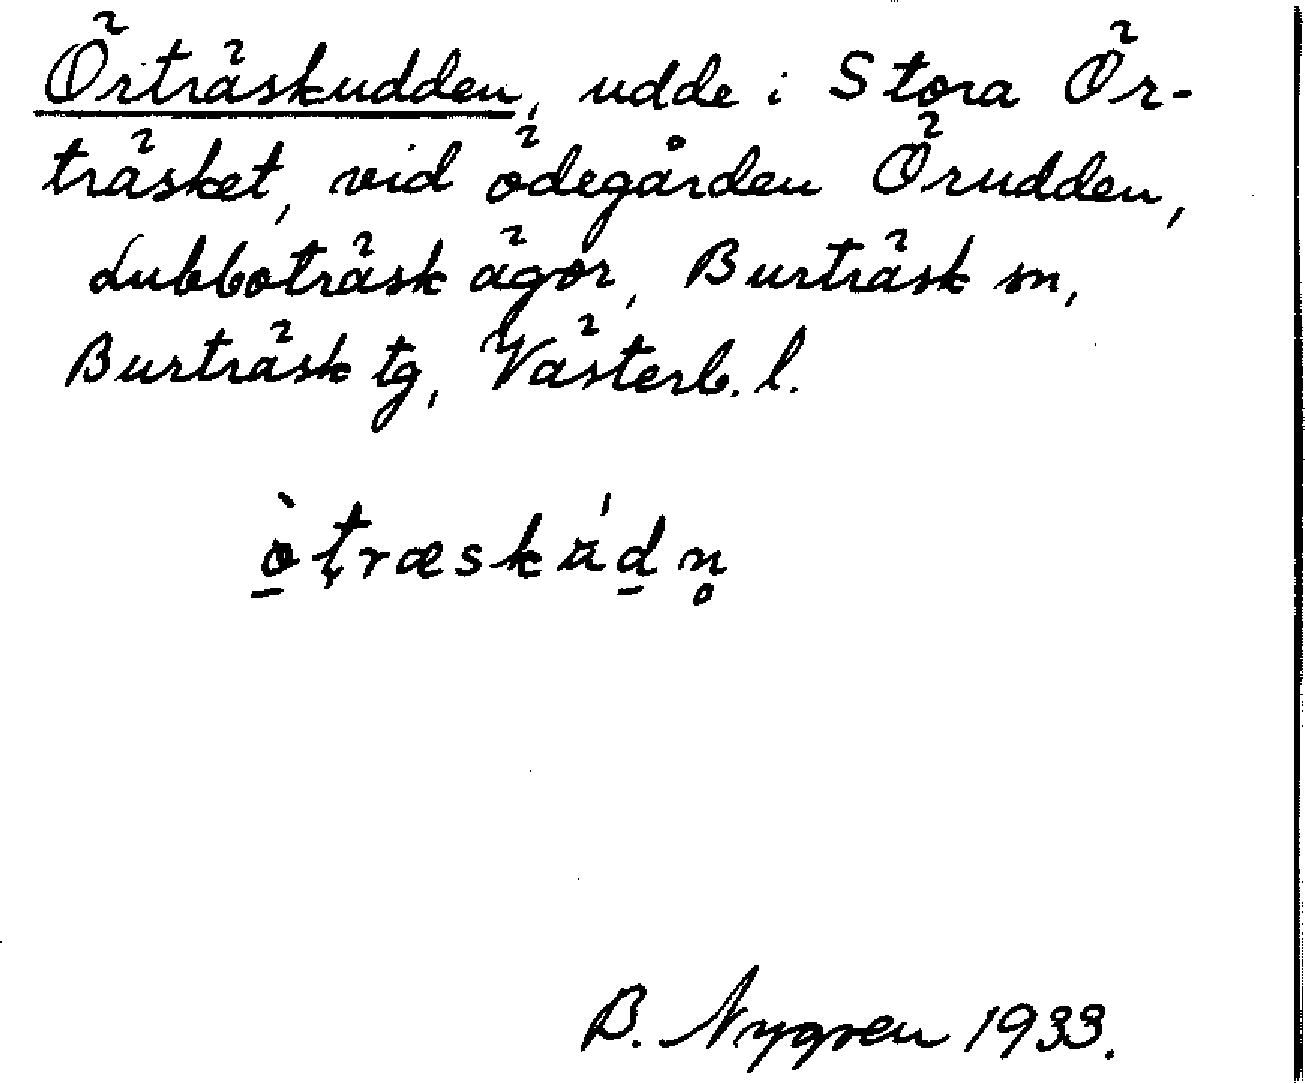 Örträskudden, udde i Stora Ör-
träsket, vid ödegården Örudden,
Lubboträsk ägor, Burträsk sn,
Burträsk tg, Västerb. l.
ò̱ţræsku̇́ḏn̥
B. Nygren 1933.